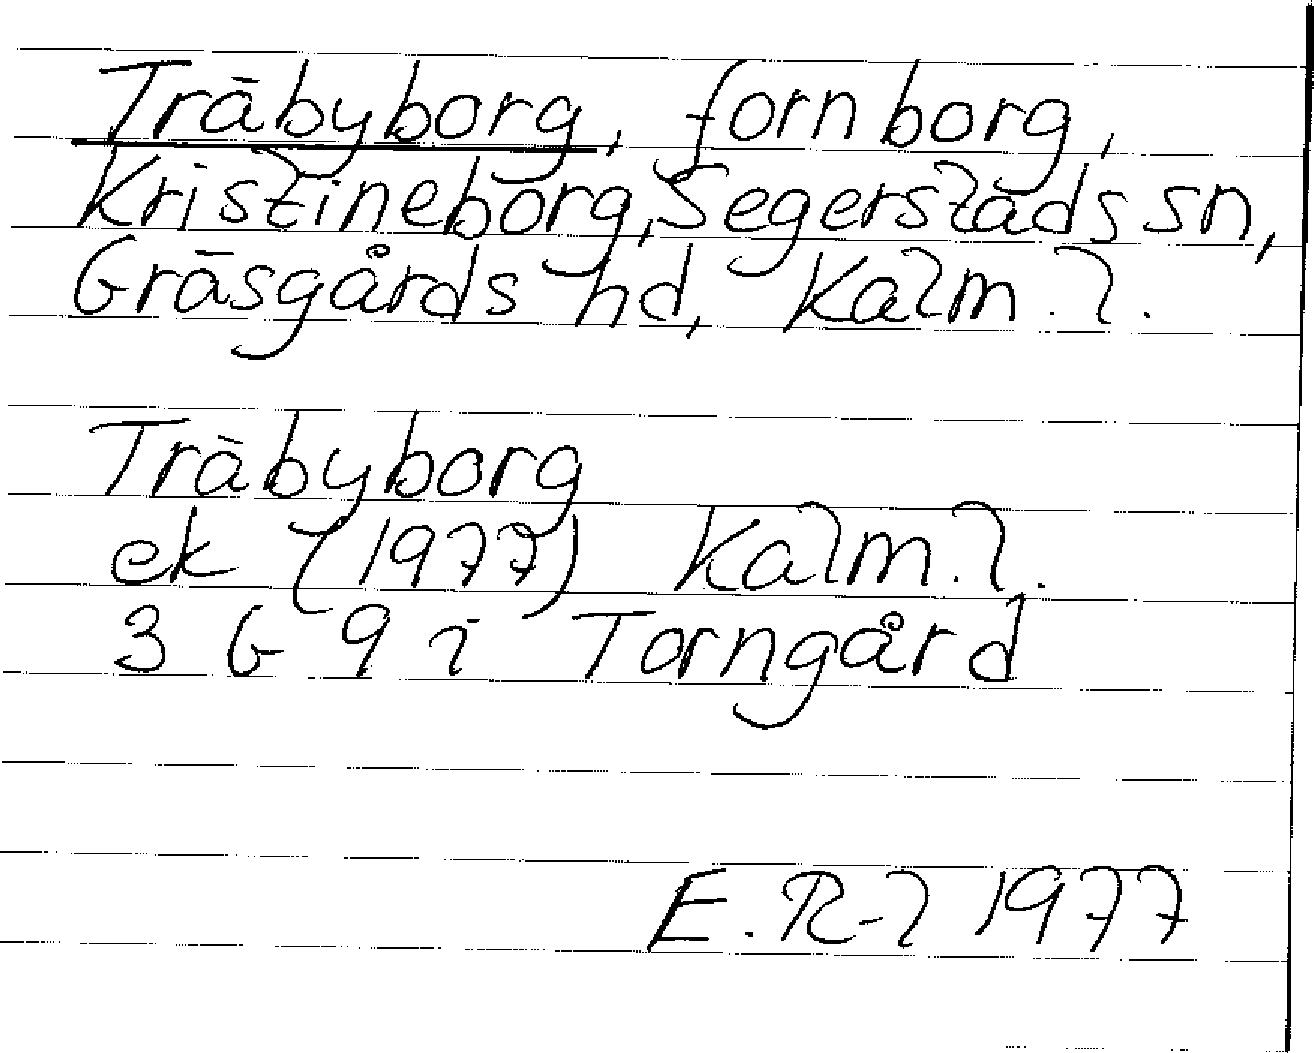 Träbyborg, fornborg,
Kristineborg, Segerstads sn,
Gräsgårds hd, Kalm. l.
Träbyborg
ek (1977) Kalm. l.
3 G 9 i Torngård
E. R-l 1977